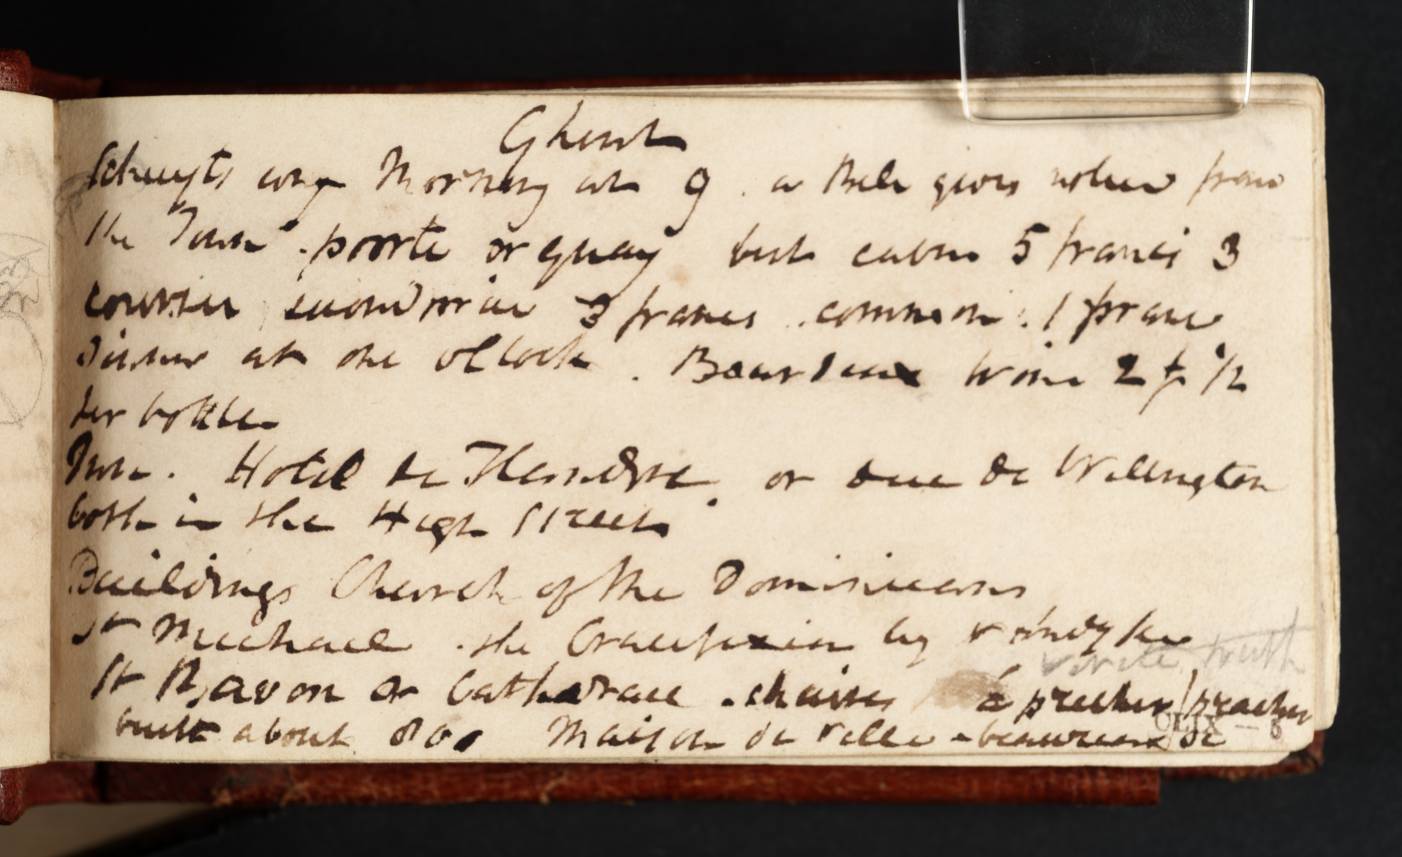 Ghent
Schuyts every Morning at 9 . a Bell gives notice from
the Town . poorte or quay best cabin 5 francs 3
courses second price 3 francs . common . 1 franc
Dinner at one oClock . Bourdeaux wine 2 f 1/2
per bottle
Inn . Hotel de Flandre . or Duc de Wellington
both in the High Street
Buildings Church of the Dominicans
St Michael . the Crucifixion by Vandyke
verité truth
St Bavon or Cathedral . chaises à precher / preacher
built about 800 Maison de Ville - beaureau de
CLIX - 6